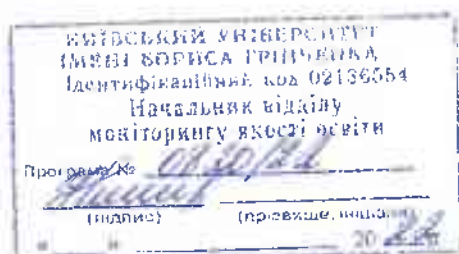 КИЇВСЬКИЙ УНІВЕРСИТЕТ
ІМЕНІ БОРИСА ГРІНЧЕНКА
Ідентифікаційний код 02136554
Начальник відділу
моніторингу якості освіти
Програма №
(підпис) (прізвище,
" " 20